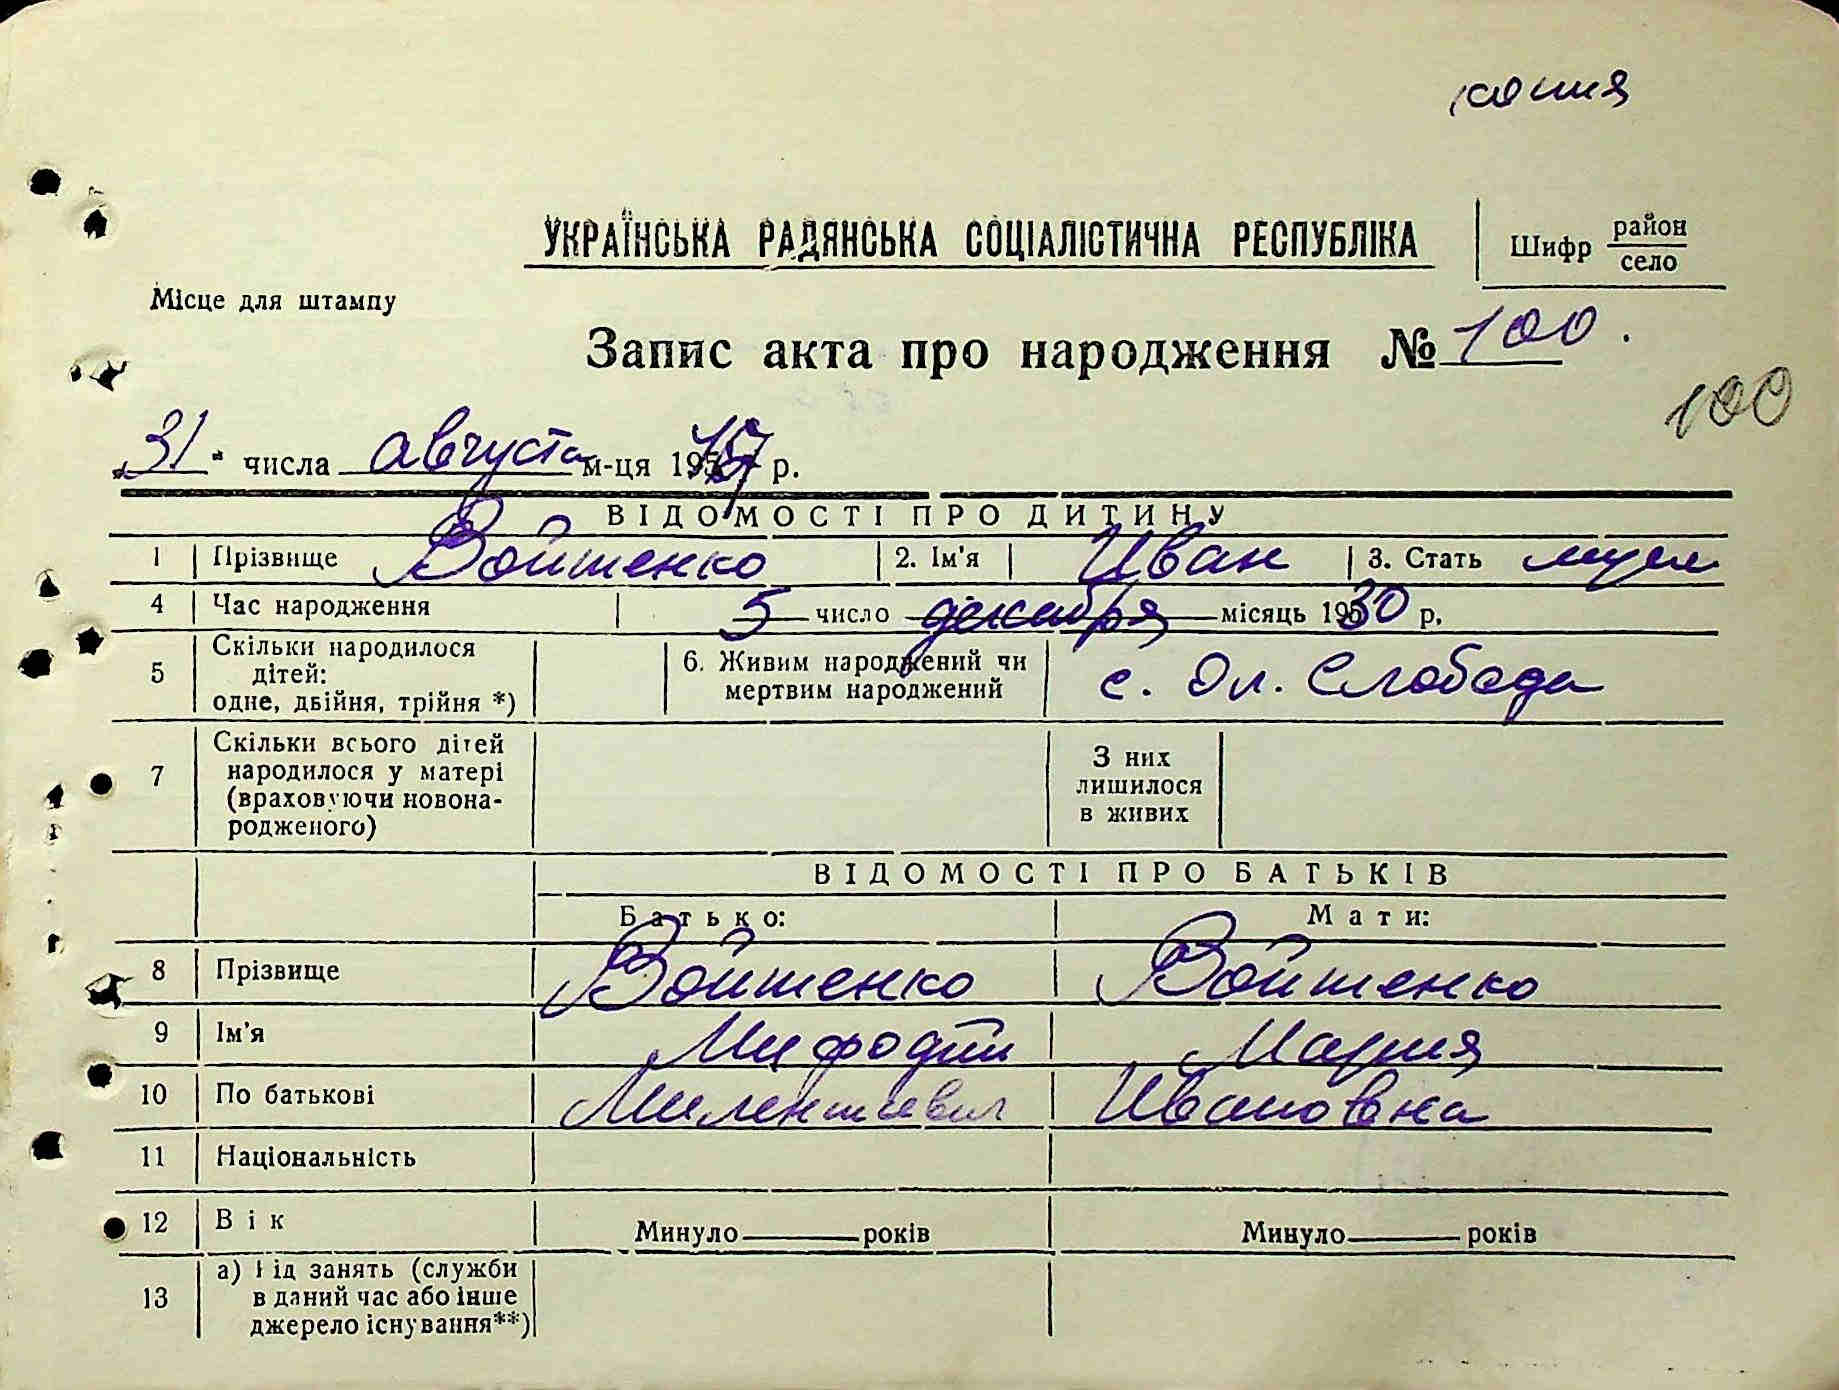 копия
УКРАЇНСЬКА РАДЯНСЬКА СОЦІАЛІСТИЧНА РЕСПУБЛІКА
Шифр район
село
Місце для штампу
Запис акта про народження № 100.
100
„31" числа августа м-ця 195 р.
ВІДОМОСТІ ПРО ДИТИНУ
1 Прізвище Войтенко 2. Ім'я Иван 3. Стать муж
4 Час народження 5 число декабря місяць 1930 р.
5 Скільки народилося дітей: одне, двійня, трійня *) 6. Живим народжений чи мертвим народжений с. Ол. Слобода
7 Скільки всього дітей народилося у матері (враховуючи новонародженого) З них лишилося в живих
ВІДОМОСТІ ПРО БАТЬКІВ
Батько: Мати:
8 Прізвище Войтенко Войтенко
9 Ім'я Мифодий Мария
10 По батькові Милентиевич Ивановна
11 Національність
12 Вік Минуло років Минуло років
13 а) Рід занять (служби в даний час або інше джерело існування**)